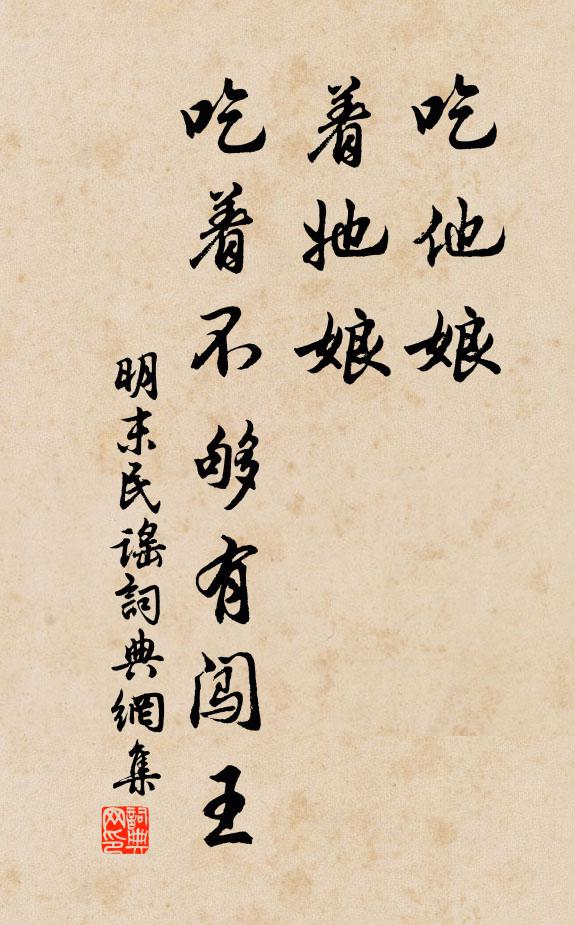 吃他娘
着她娘
吃着不够有闯王
明末民谣詞典網集
詞典网印